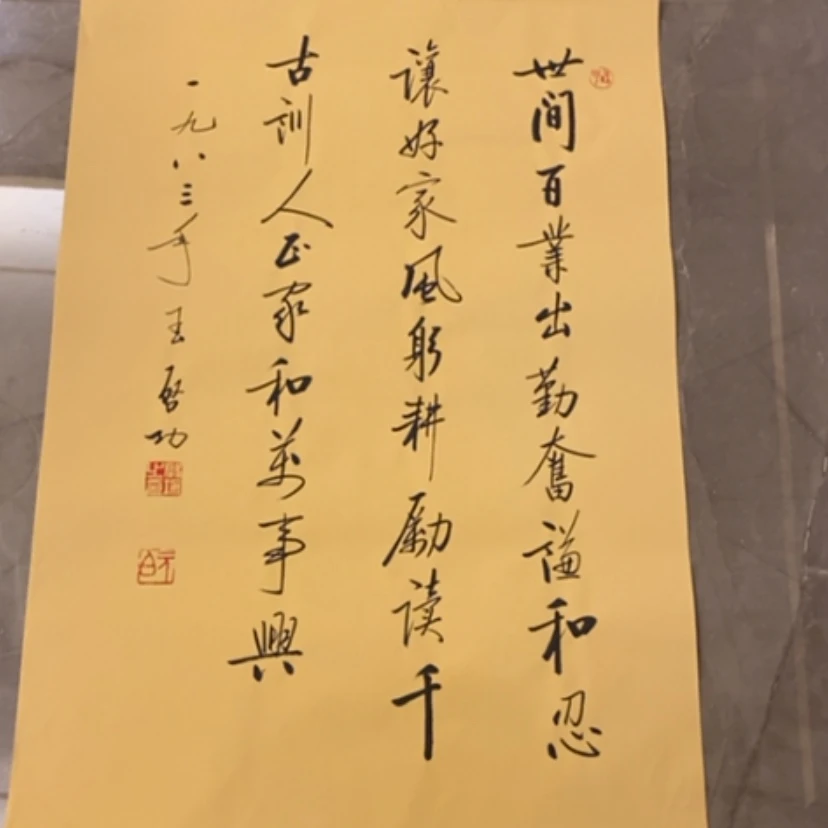 世间百業出勤奮谦和忍
讓好家風躬耕励读千
古训人正家和萬事興
一九八三年王啓功